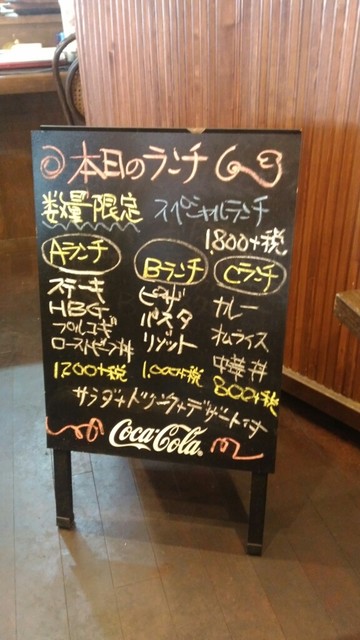 本日のランチ
数量限定 スペシャルランチ
1,800+税
Aランチ
ステーキ
HBG
プルコギ
ローストビーフ丼
1200+税
Bランチ
ピザ
パスタ
リゾット
1,000+税
Cランチ
カレー
オムライス
中華丼
800+税
サラダ+ドリンク+デザート付
Coca-Cola